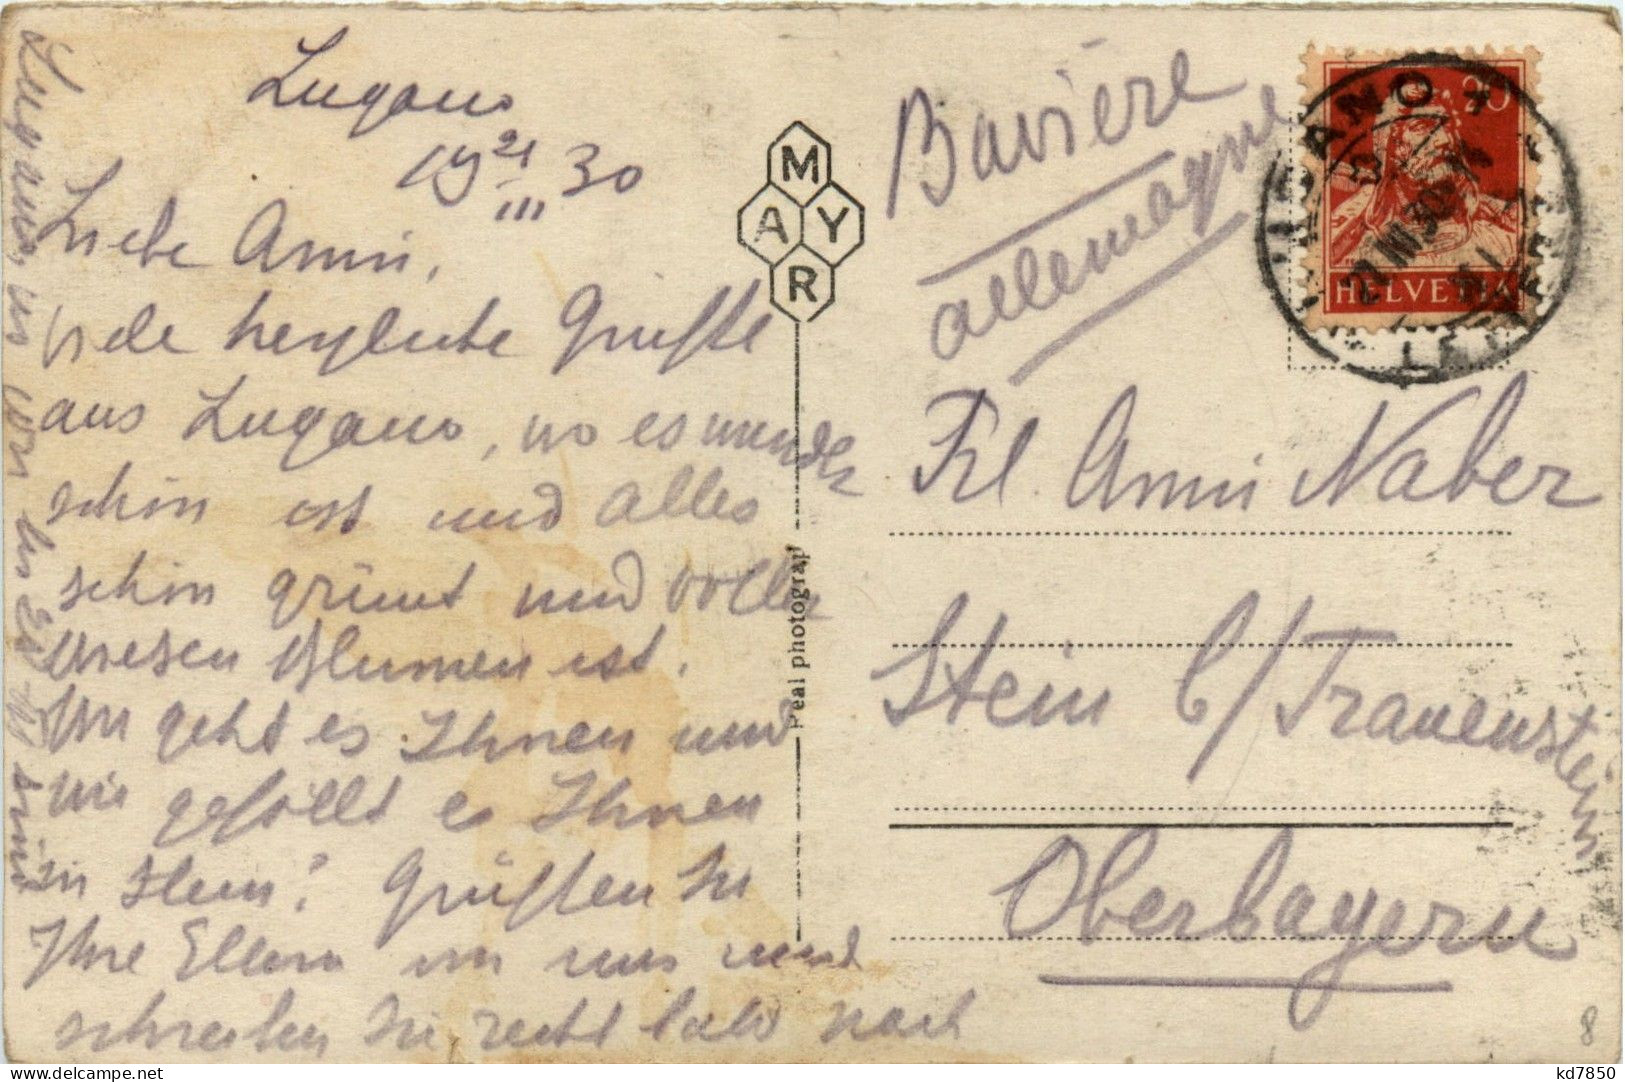 Lugano
19 21/III 30
Liebe Anni,
viele herzliche Grüße
aus Lugano, wo es wunder
schön ist und alles
schön grünt und voller
wiesen Blumen ist.
Wie geht es Ihnen und
wie gefällt es Ihnen
in Stein? Grüßen Sie
Ihre Eltern von uns und
schreiben Sie recht bald nach
Lugano wo wir bis
MAYR
Real photograph
Bavière
allemagne
LUGANO
20
HELVETIA
Frl. Anni Naber
Stein b/Trauenstein
Oberbayern
8
kd7850